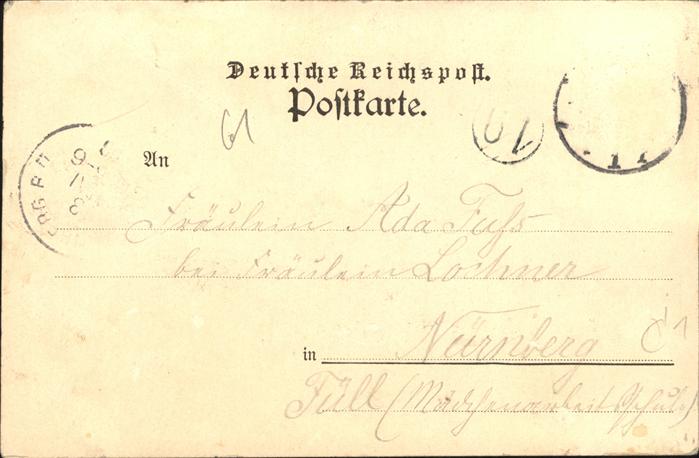 Deutsche Reichspost.
Postkarte.
61
10
An
Fräulein Ada Fuß
bei Fräulein Lochner
in Nürnberg
Füll (Mädchenarbeit Schule)